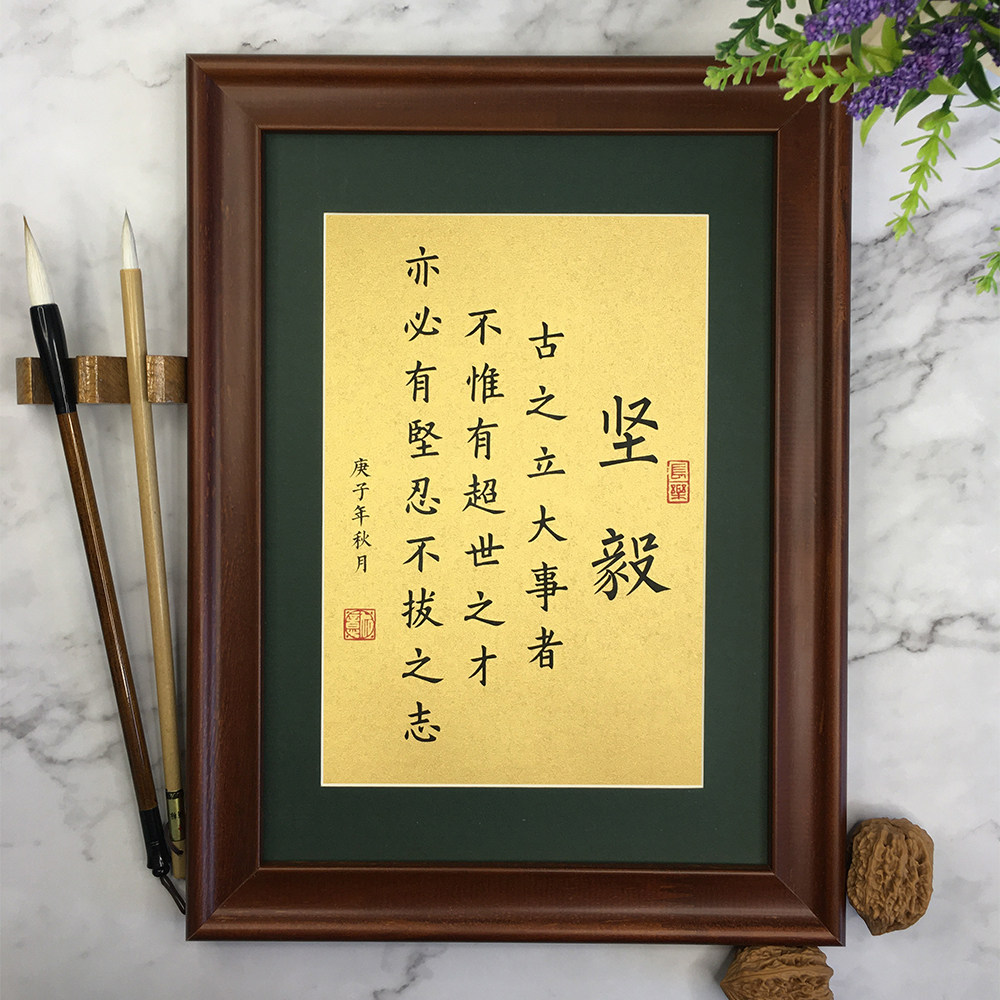 坚毅
長樂
古之立大事者
不惟有超世之才
亦必有堅忍不拔之志
庚子年秋月